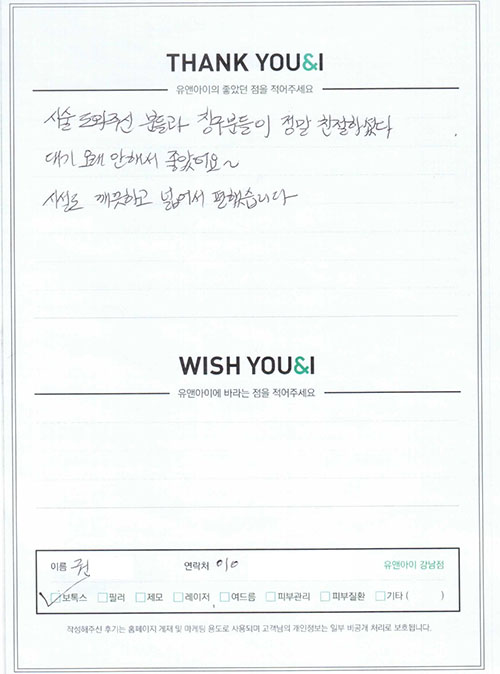 THANK YOU&I
유앤아이의 좋았던 점을 적어주세요
시술 도와주신 분들과 창구분들이 정말 친절하셨다
대기 오래 안해서 좋았어요~
시설도 깨끗하고 넓어서 편했습니다
WISH YOU&I
유앤아이에 바라는 점을 적어주세요
이름 권 연락처 010 유앤아이 강남점
보톡스 필러 제모 레이저 여드름 피부관리 피부질환 기타 ( )
작성해주신 후기는 홈페이지 게재 및 마케팅 용도로 사용되며 고객님의 개인정보는 일부 비공개 처리로 보호됩니다.